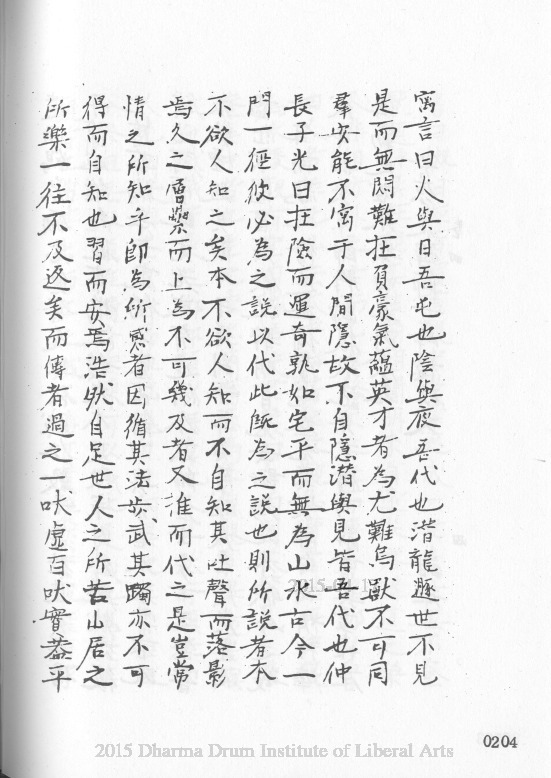 寓言曰火與日吾屯也陰與夜吾代也潛龍遯世不見
是而無悶難在負豪氣蘊英才者為尤難鳥獸不可同
羣安能不寓于人間隱故不自隱潛與見皆吾代也仲
長子光曰在險而運奇孰如宅平而無為山水古今一
門一徑彼必為之說以代此既為之說也則所說者本
不欲人知之矣本不欲人知而不自知其吐聲而落影
焉久之層櫐而上為不可幾及者又誰而代之是豈常
情之所知乎即為所惑者因循其法步武其躅亦不可
得而自知也習而安焉浩然自足世人之所苦山居之
所樂一往不及返矣而傳者過之一吠虛百吠實葢平
0204
2015 Dharma Drum Institute of Liberal Arts